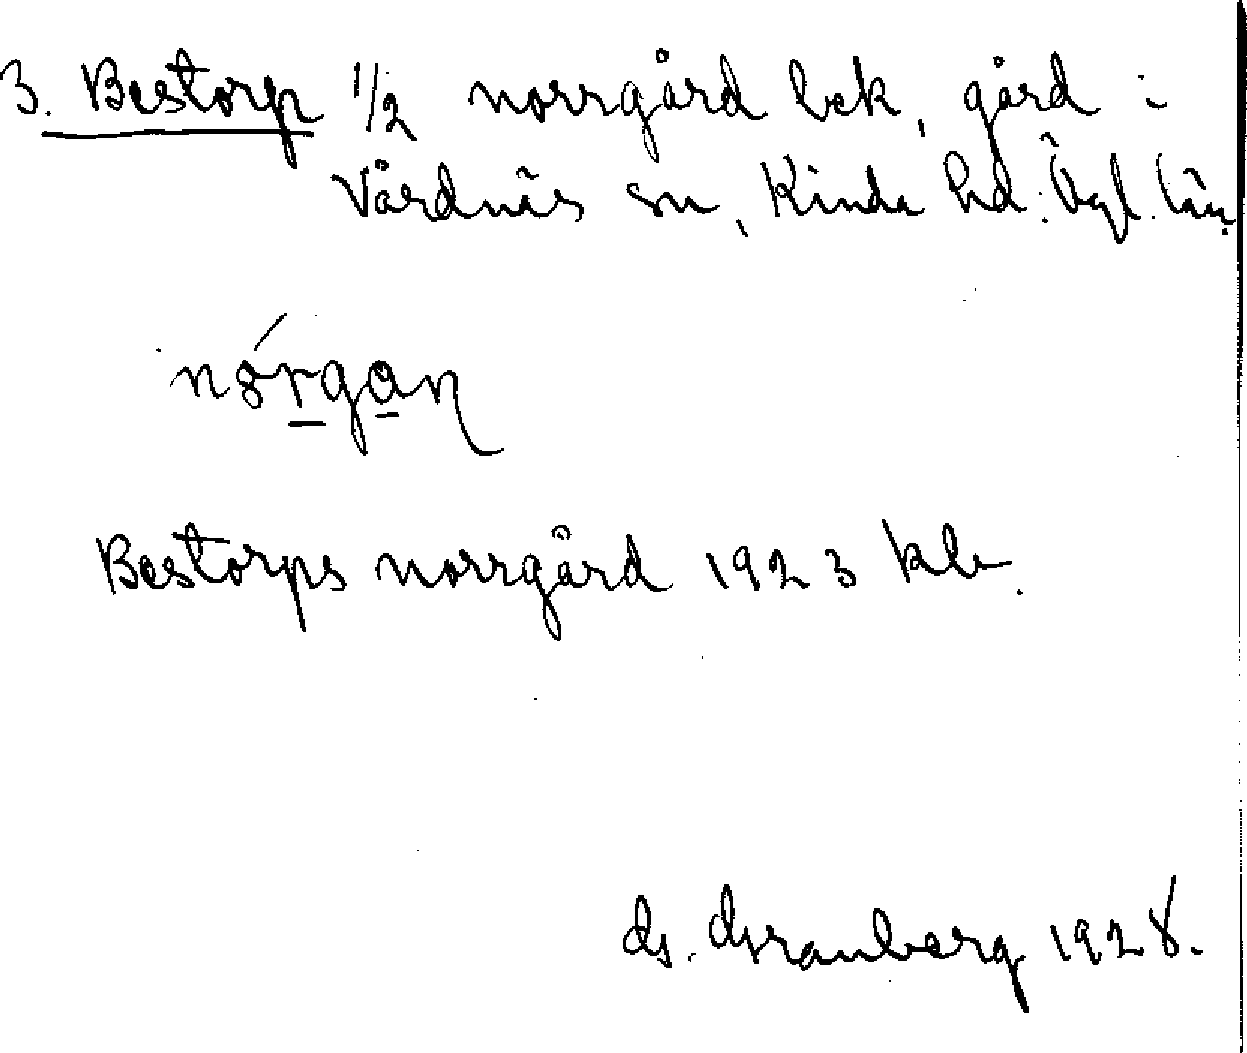 3. Bestorp 1/2 norrgård bek, gård i
Vårdnäs sn, Kinda hd. Ögl. län.
nórgan
Bestorps norrgård 1923 kb.
G. Granberg 1928.